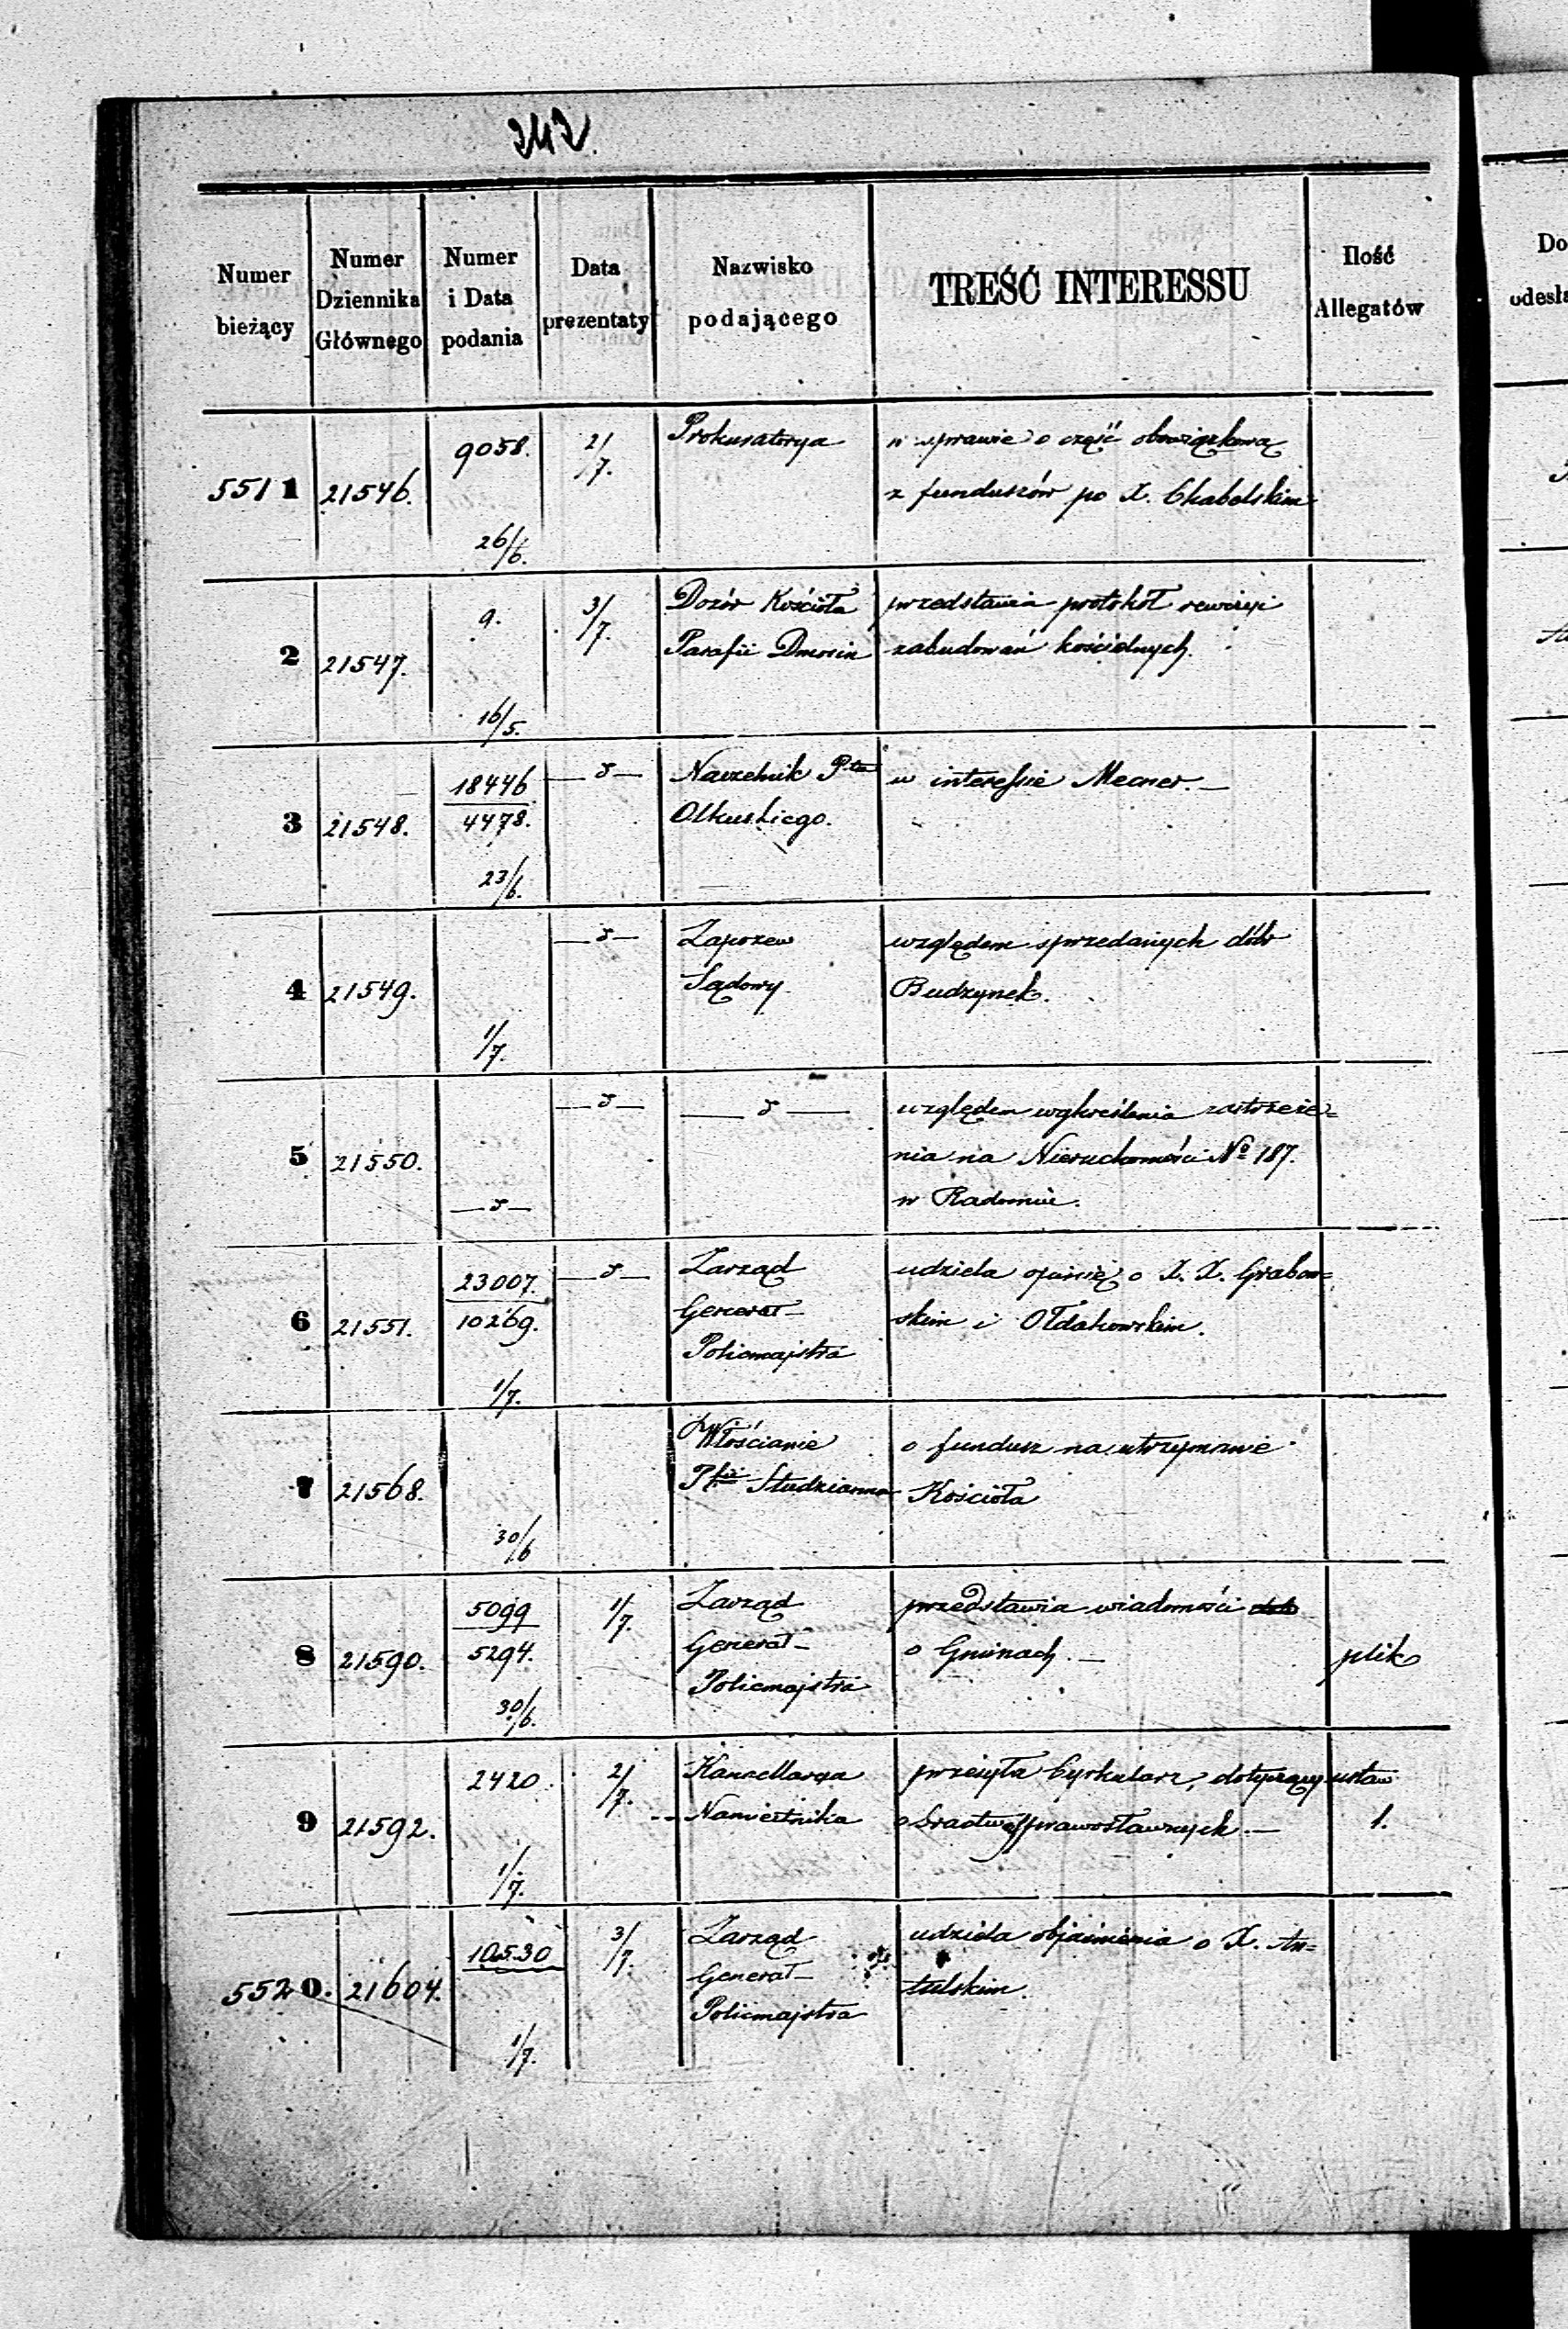 242.
Numer bieżący | Numer Dziennika Głównego | Numer i Data podania | Data prezentaty | Nazwisko podającego | TREŚĆ INTERESSU | Ilość Allegatów
5511 | 21546. | 9058. 26/6. | 2/7. | Prokuratorya | w sprawie o część obowiązkową
z funduszów po X. Chabelskim
2 | 21547. | 9. 16/5. | 3/7. | Dozór Kościoła | przedstawia protokół rewizyi
Parafii Dmosin | zabudowań kościelnych.
3 | 21548. | 18446 / 4478. 23/6. | —d— | Naczelnik Ptu | w interessie Mecner.—
Olkuskiego.
4 | 21549. | 1/7. | —d— | Zapozew | względem sprzedanych dóbr
Sądowy | Budzynek.
5 | 21550. | —d— | —d— | —d— | względem wykreślenia zastrzeże=
nia na Nieruchomości № 187.
w Radomiu.
6 | 21551. | 23007. / 10269. 1/7. | —d— | Zarząd | udziela opinię o X. X. Grabow=
Generał– | skim i Ołdakowskim.
Policmajstra
7 | 21568. | 30/6 | Włościanie | o fundusz na utrzymanie
Pfii Studzianna | Kościoła
8 | 21590. | 5099 / 5294. 30/6. | 1/7. | Zarząd | przedstawia wiadomości
Generał– | o Gminach.— | plik
Policmajstra
9 | 21592. | 2420. 1/7. | 2/7. | Kancellarya | przesyła Cyrkularz, dotyczący ustaw
Namiestnika | o Bractwach prawosławnych.— | 1.
5520. | 21604. | 10530 1/7. | 3/7. | Zarząd | udziela objaśnienia o X. An=
Generał– | tulskim.
Policmajstra
Do
odesła